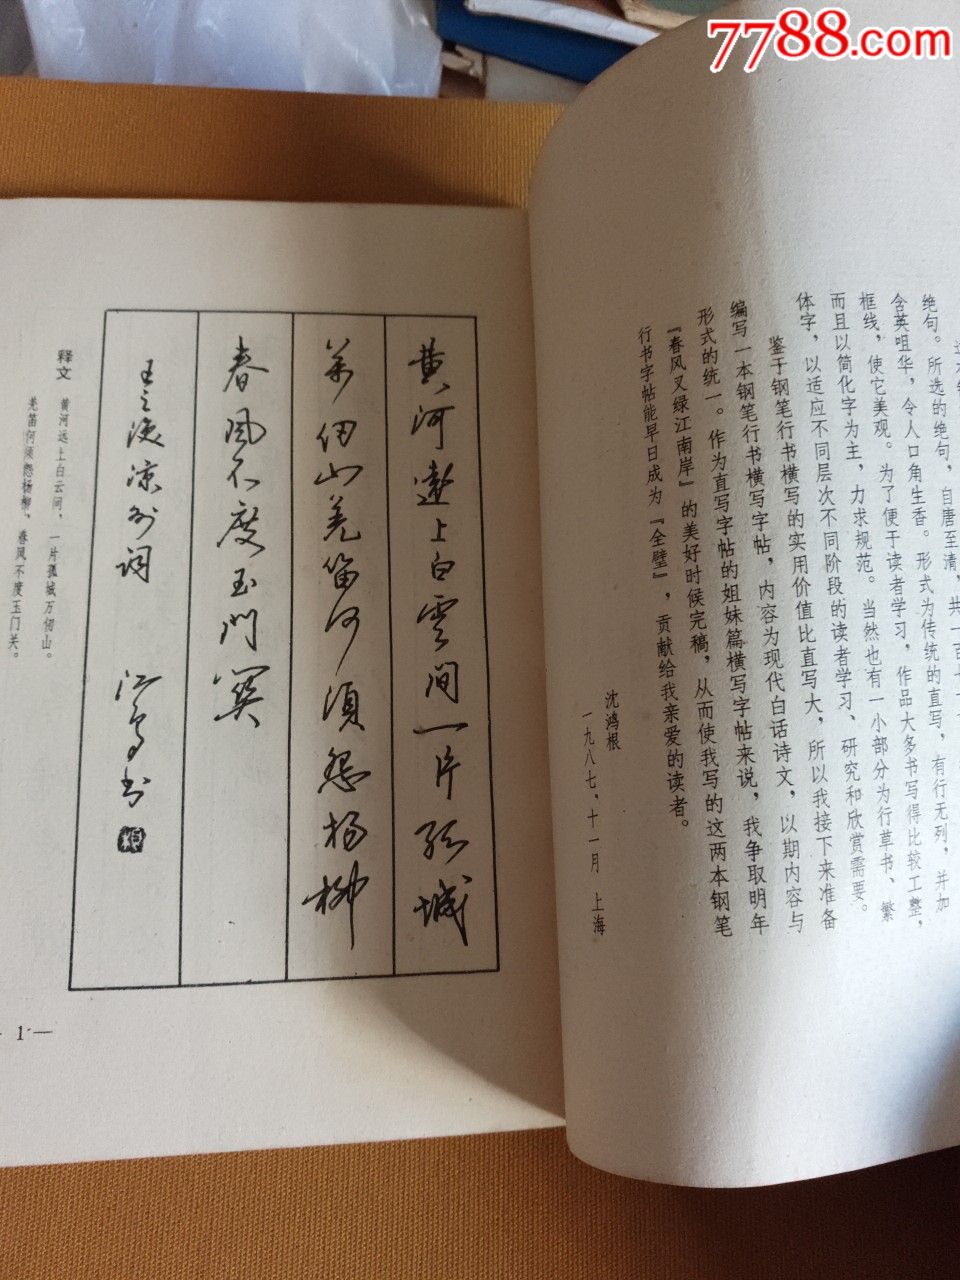 7788.com
绝句。所选的绝句，自唐至清，共一百
含英咀华，令人口角生香。形式为传统的直写，有行无列，并加
框线，使它美观。为了便于读者学习，作品大多书写得比较工整，
而且以简化字为主，力求规范。当然也有一小部分为行草书、繁
体字，以适应不同层次不同阶段的读者学习、研究和欣赏需要。
鉴于钢笔行书横写的实用价值比直写大，所以我接下来准备
编写一本钢笔行书横写字帖，内容为现代白话诗文，以期内容与
形式的统一。作为直写字帖的姐妹篇横写字帖来说，我争取明年
『春风又绿江南岸』的美好时候完稿，从而使我写的这两本钢笔
行书字帖能早日成为『全璧』，贡献给我亲爱的读者。
沈鸿根
一九八七、十一月 上海
黄河遠上白雲间一片孤城
万仞山羌笛何須怨杨柳
春风不度玉门関
王之涣凉州词 江鸟书
释文 黄河远上白云间，一片孤城万仞山。
羌笛何须怨杨柳，春风不度玉门关。
1 —